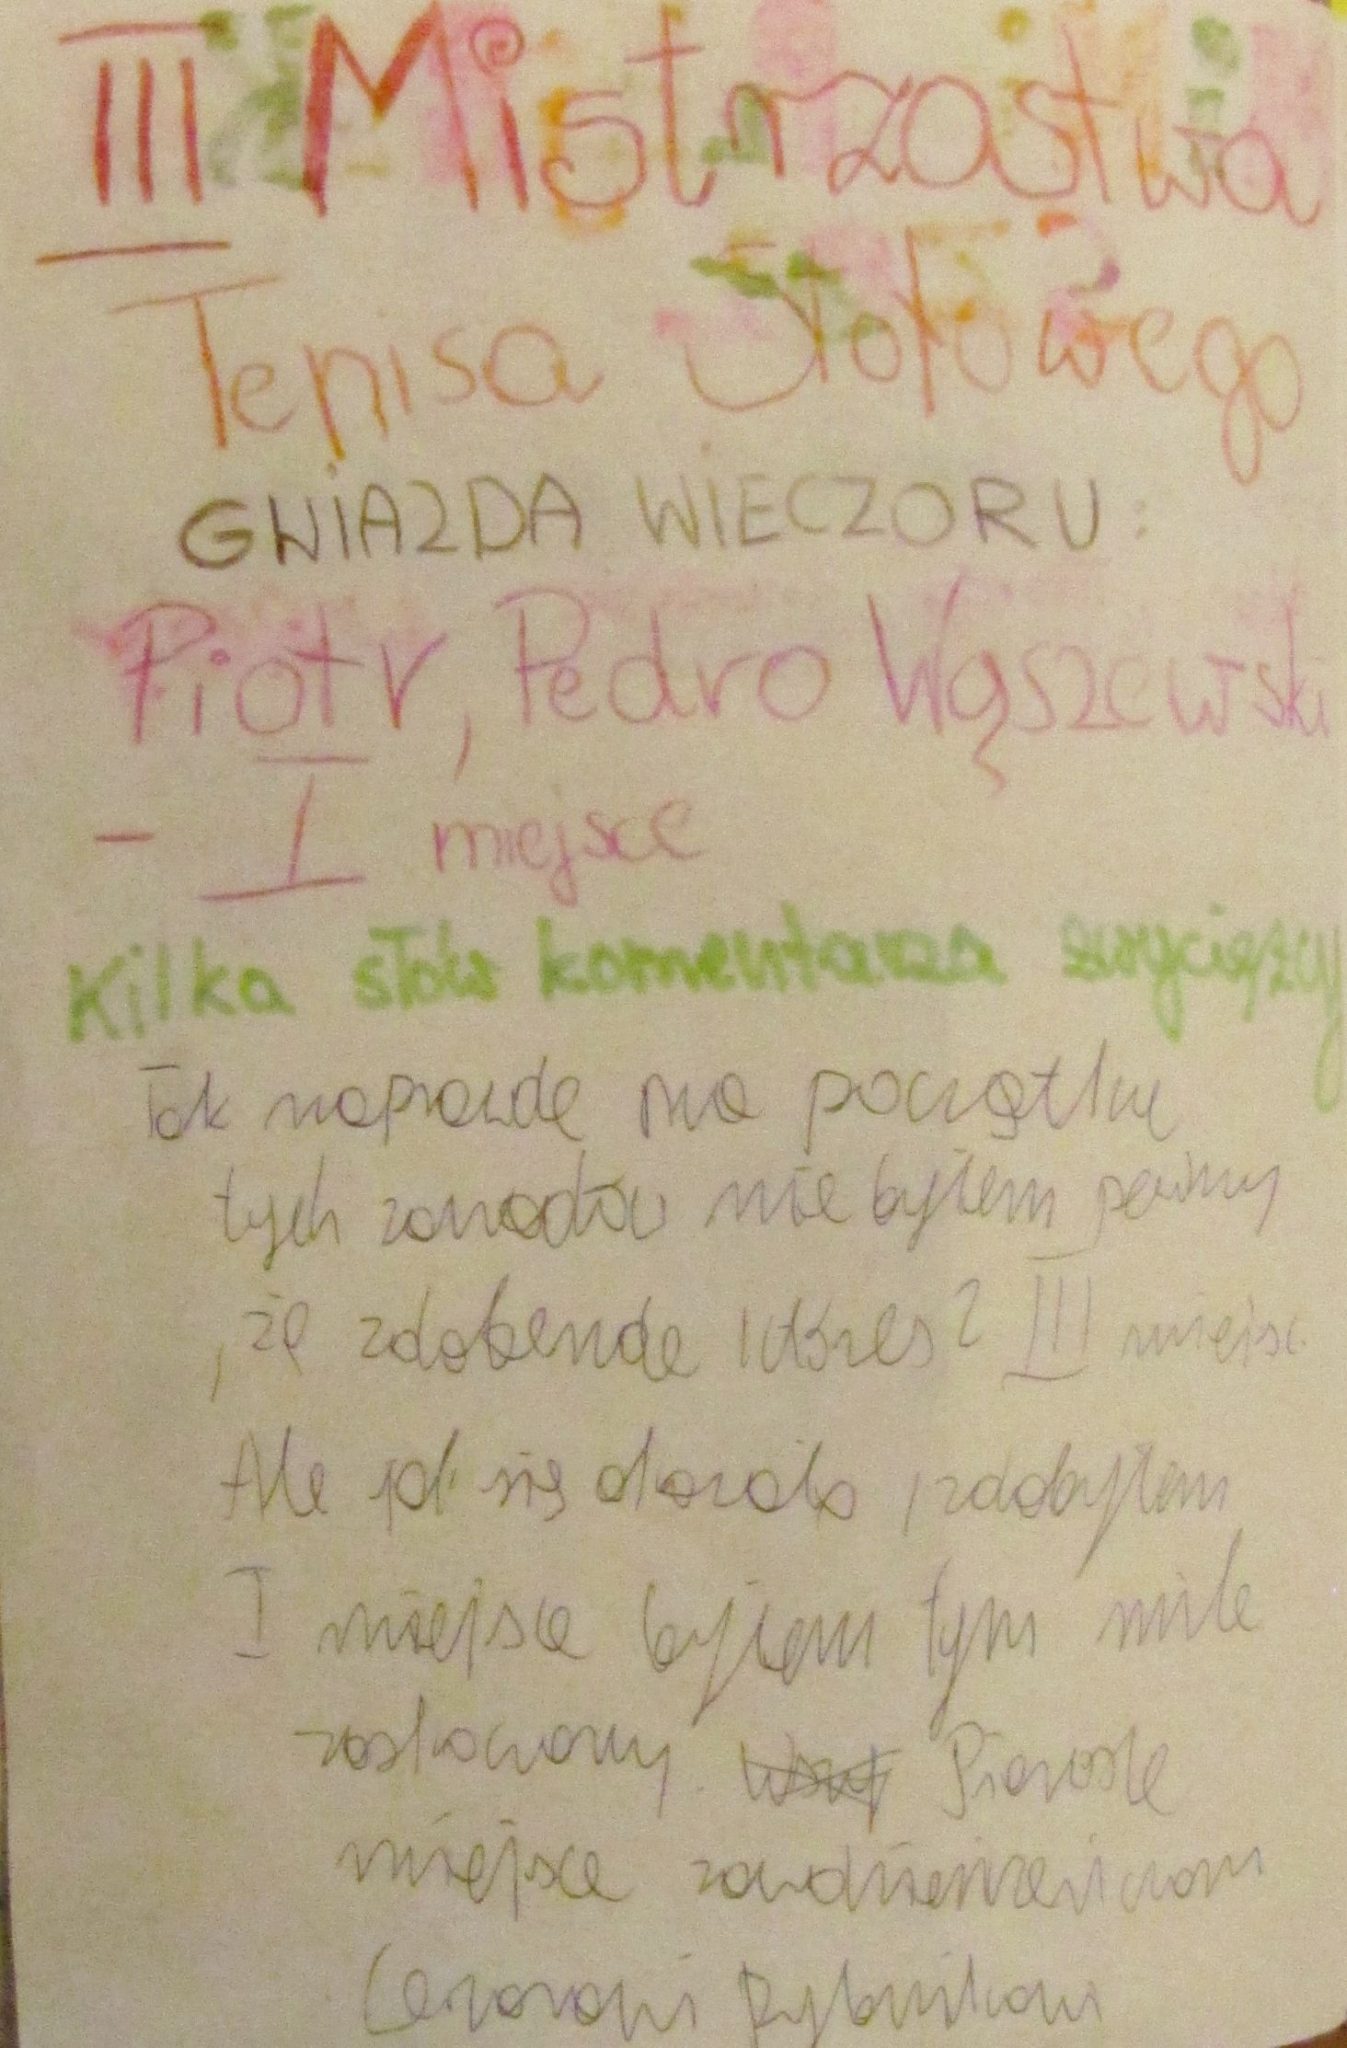 III Mistrzostwa
Tenisa Stołowego
GWIAZDA WIECZORU:
Piotr, Pedro Wąszewski
- I miejsce
Kilka słów komentarza zwycięzcy
Tak naprawdę na początku
tych zawodów nie byłem pewny
, że zdobende III miejsc
Ale jak się okazało, zdobyłem
I miejsce byłem tym mile
zaskoczony. Pierwsze
miejsce
Cezarowi Rybnikowi